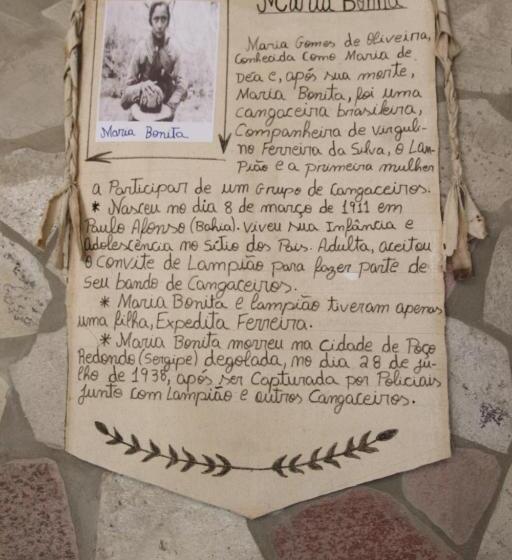 Maria Bonita
Maria Bonita
Maria Gomes de Oliveira,
Conhecida como Maria de
Déa e, após sua morte,
Maria Bonita, foi uma
cangaceira brasileira,
Companheira de virguli-
no Ferreira da Silva, o Lam-
Pião e a primeira mulher
a Participar de um Grupo de Cangaceiros.
* Nasceu no dia 8 de março de 1911 em
Paulo Afonso (Bahia). viveu sua Infância e
adolescência no Sítio dos Pais. Adulta, aceitou
o Convite de Lampião para fazer parte de
seu bando de Cangaceiros.
* Maria Bonita e lampião tiveram apenas
uma filha, Expedita Ferreira.
* Maria Bonita morreu na cidade de Poço
Redondo (Sergipe) degolada, no dia 28 de ju-
lho de 1938, após ser Capturada por Policiais
junto com Lampião e outros Cangaceiros.